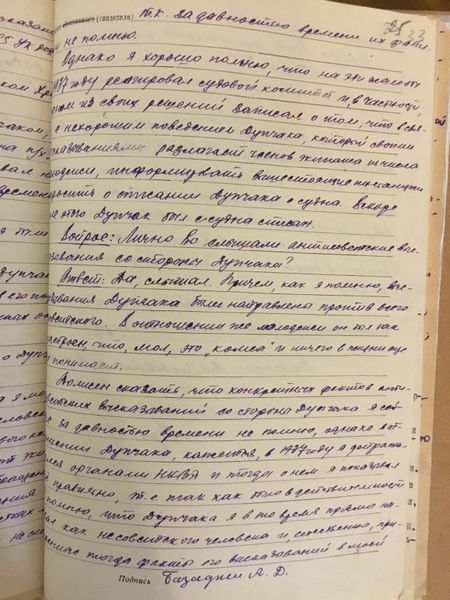 23
(свидетеля) т.к. за давностью времени их фамилии
не помню.
Однако я хорошо помню, что на эти жалобы
1937 году реагировал судовой комитет и в частности
одном из своих решений записал о том, что в связи
с нехорошим поведением Дупчака, который своими
высказываниями разлагает членов экипажа из числа
молодежи, информировать вышестоящие инстанции
просить о списании Дупчака с судна. Вскоре
после этого Дупчак был с судна списан.
Вопрос: Лично Вы слышали антисоветские вы-
сказывания со стороны Дупчака?
Ответ: Да, слышал. Причем, как я помню, вы-
сказывания Дупчака были направлены против всего
советского. В отношении же молодежи он был так
настроен что, мол, это "комса" и ничего в жизни еще
не понимает.
Должен сказать, что конкретных фактов анти-
советских высказываний со стороны Дупчака я сей-
час за давностью времени не помню, однако в от-
ношении Дупчака, кажется, в 1937 году я допраши-
вался органами НКВД и тогда о нем я показывал
правильно, т.е. так как было в действительности
помню, что Дупчака я в то время прямо на-
как несоветского человека и, естественно, при-
тогда факты его высказываний в моей
Подпись Базаджи А. Д.